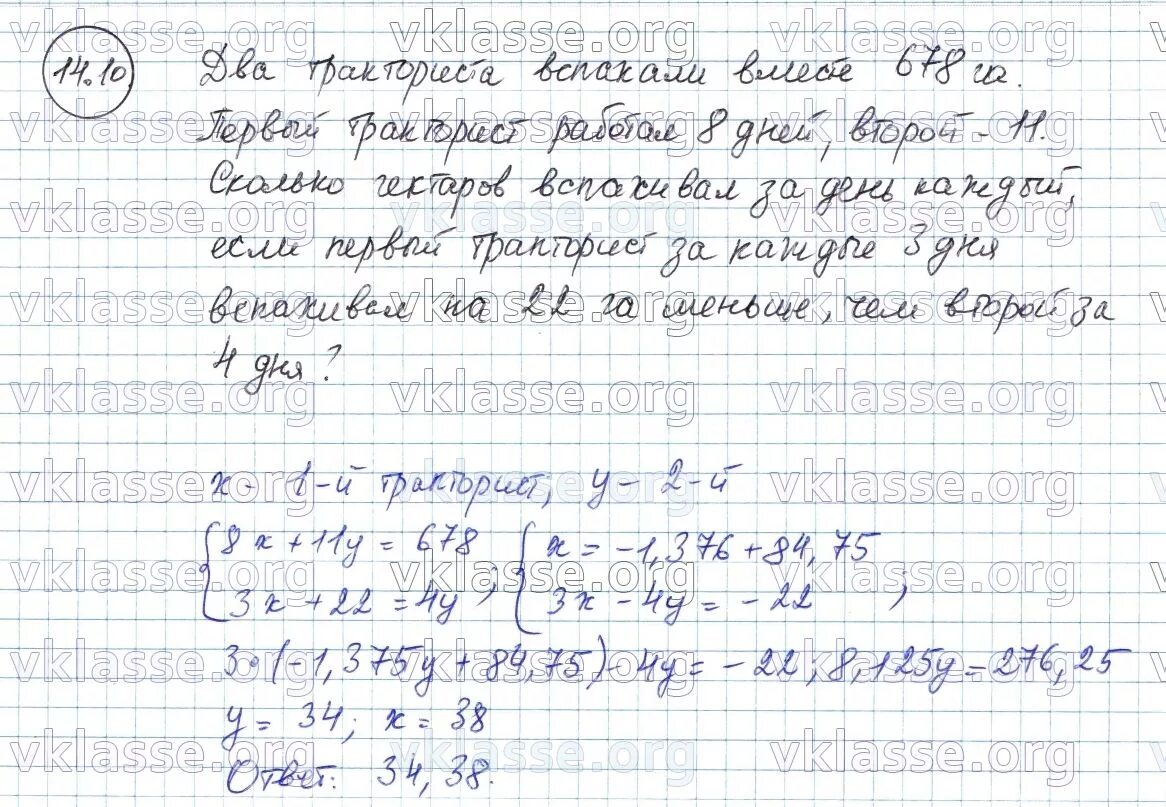 14.10
Два тракториста вспахали вместе 678 га.
Первый тракторист работал 8 дней, второй - 11.
Сколько гектаров вспахивал за день каждый,
если первый тракторист за каждые 3 дня
вспахивал на 22 га меньше, чем второй за
4 дня?
x - 1-й тракторист, y - 2-й
{ 8x + 11y = 678 ; { x = -1,376 + 84,75 ;
3x + 22 = 4y 3x - 4y = -22
3·(-1,375y + 84,75) - 4y = -22; 8,125y = 276,25
y = 34; x = 38
Ответ: 34, 38.
vklasse.org